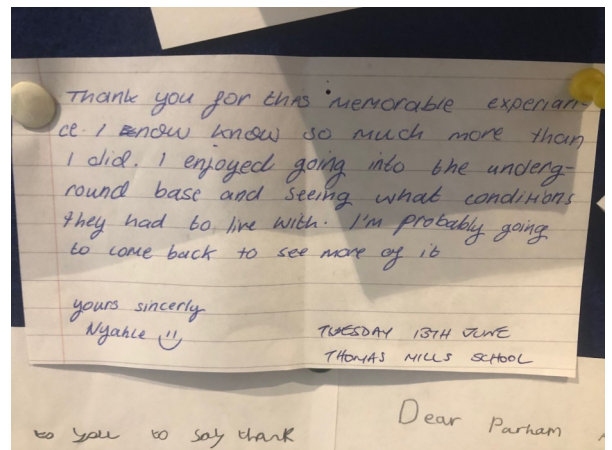 Thank you for this memorable experian-
ce. I now know so much more than
I did. I enjoyed going into the underg-
round base and seeing what conditions
they had to live with. I'm probably going
to come back to see more of it
yours sincerly
Nyahle
TUESDAY 13TH JUNE
THOMAS MILLS SCHOOL
to you to say thank
Dear Parham